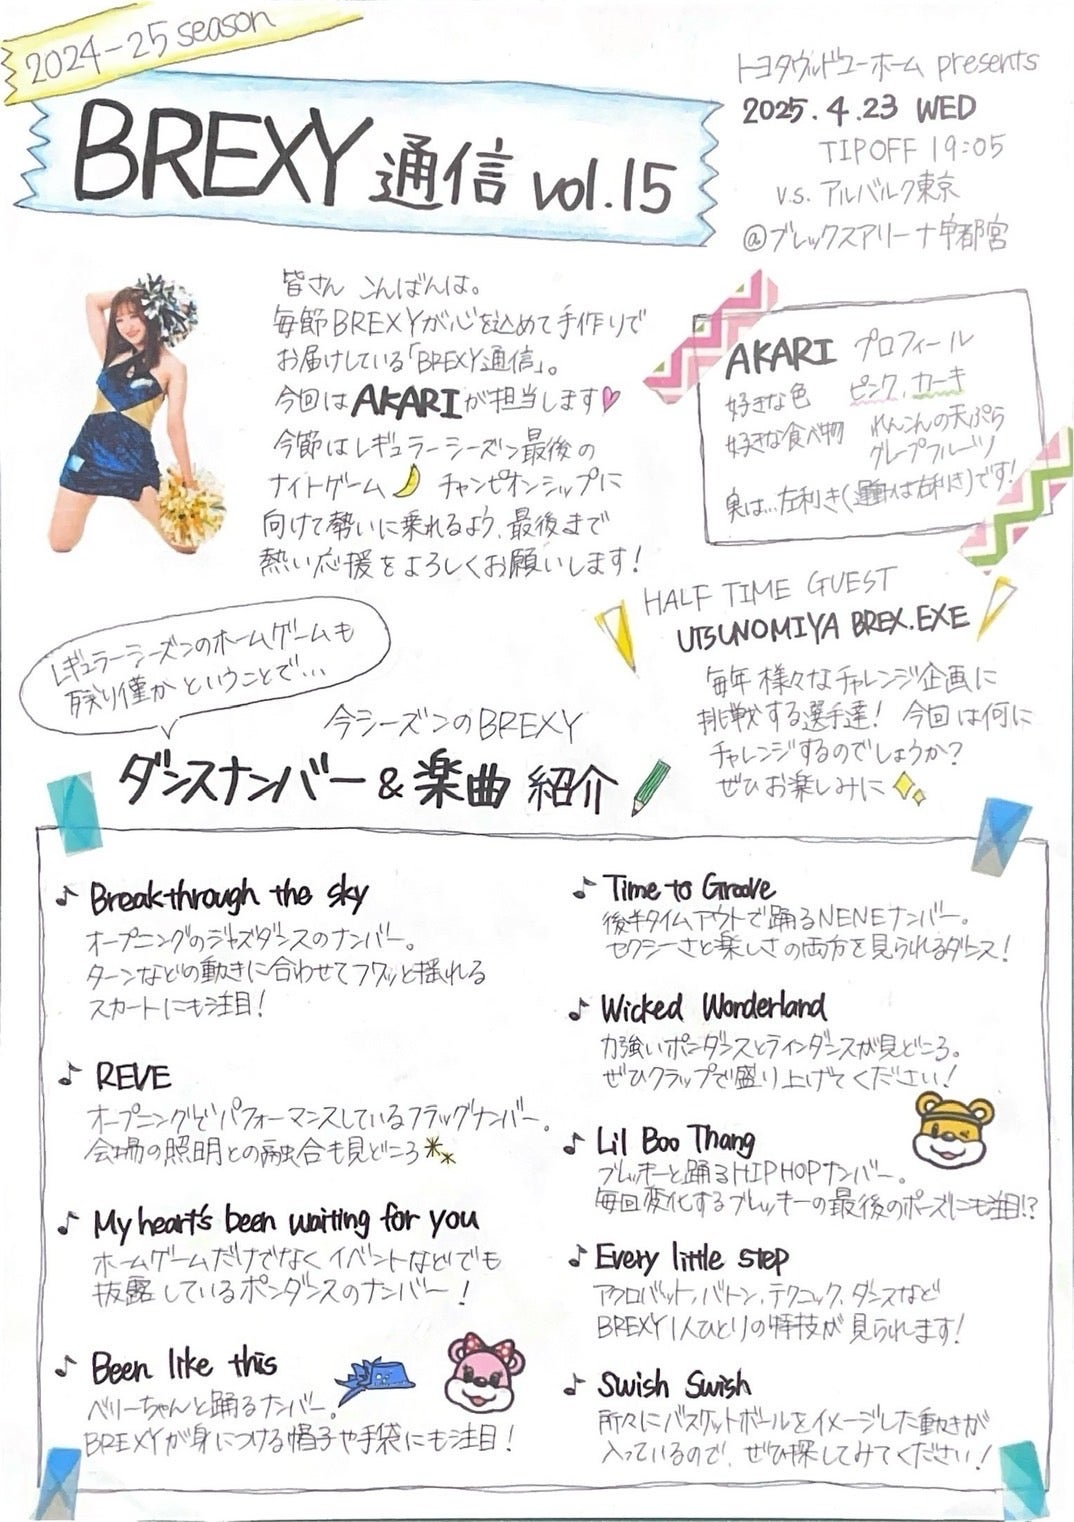 2024-25 season
BREXY 通信 vol.15
トヨタウッドユーホーム presents
2025.4.23 WED
TIPOFF 19:05
v.s. アルバルク東京
@ブレックスアリーナ宇都宮
皆さん こんばんは。
毎節BREXYが心を込めて手作りで
お届けしている「BREXY通信」。
今回はAKARIが担当します♡
今節はレギュラーシーズン最後の
ナイトゲーム チャンピオンシップに
向けて勢いに乗れるよう、最後まで
熱い応援をよろしくお願いします!
AKARI プロフィール
好きな色 ピンク、カーキ
好きな食べ物 れんこんの天ぷら
グレープフルーツ
実は…左利き(運動は右利き)です!
HALF TIME GUEST
UTSUNOMIYA BREX.EXE
毎年 様々なチャレンジ企画に
挑戦する選手達! 今回は何に
チャレンジするのでしょうか?
ぜひお楽しみに
レギュラーシーズンのホームゲームも
残り僅かということで…
今シーズンのBREXY
ダンスナンバー&楽曲 紹介
♪ Breakthrough the sky
オープニングのジャズダンスのナンバー。
ターンなどの動きに合わせてフワッと揺れる
スカートにも注目!
♪ REVE
オープニングでパフォーマンスしているフラッグナンバー。
会場の照明との融合も見どころ
♪ My heart's been waiting for you
ホームゲームだけでなくイベントなどでも
披露しているポンダンスのナンバー!
♪ Been like this
ベリーちゃんと踊るナンバー。
BREXYが身につける帽子や手袋にも注目!
♪ Time to Groove
後半タイムアウトで踊るNENEナンバー。
セクシーさと楽しさの両方を見られるダンス!
♪ Wicked Wonderland
力強いポンダンスとラインダンスが見どころ。
ぜひクラップで盛り上げてください!
♪ Lil Boo Thang
ブレッキーと踊るHIPHOPナンバー。
毎回変化するブレッキーの最後のポーズにも注目!?
♪ Every little step
アクロバット、バトン、テクニック、ダンスなど
BREXY1人ひとりの特技が見られます!
♪ Swish Swish
所々にバスケットボールをイメージした動きが
入っているので、ぜひ探してみてください!